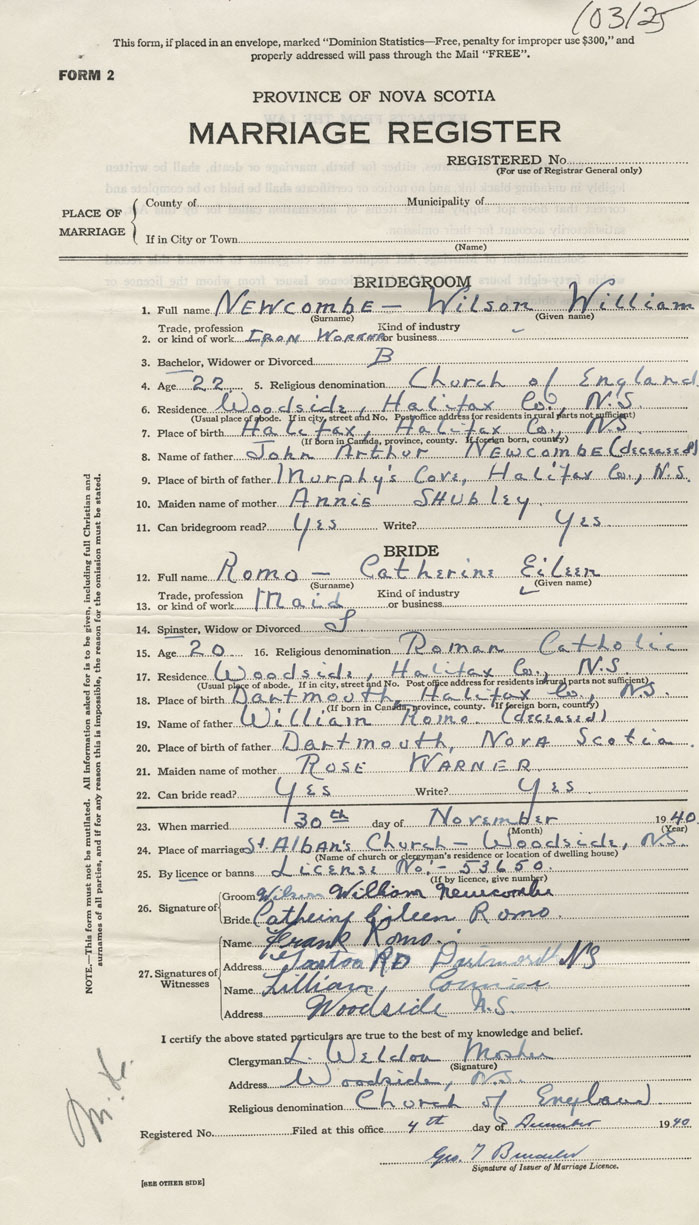 103125
This form, if placed in an envelope, marked “Dominion Statistics—Free, penalty for improper use $300,” and
properly addressed will pass through the Mail “FREE”.
FORM 2
PROVINCE OF NOVA SCOTIA
MARRIAGE REGISTER
REGISTERED No.
(For use of Registrar General only)
PLACE OF MARRIAGE
County of Municipality of
If in City or Town
(Name)
BRIDEGROOM
1. Full name NEWCOMBE — Wilson William
(Surname) (Given name)
Trade, profession Kind of industry
2. or kind of work IRON WORKER or business
3. Bachelor, Widower or Divorced B
4. Age 22 5. Religious denomination Church of England
6. Residence Woodside, Halifax Co., N.S.
(Usual place of abode. If in city, street and No. Post office address for residents in rural parts not sufficient)
7. Place of birth Halifax, Halifax Co., NS
(If born in Canada, province, county. If foreign born, country)
8. Name of father John Arthur NEWCOMBE (deceased)
9. Place of birth of father Murphy's Cove, Halifax Co., N.S.
10. Maiden name of mother ANNIE SHUBLEY
11. Can bridegroom read? Yes Write? Yes
BRIDE
12. Full name Romo — Catherine Eileen
(Surname) (Given name)
Trade, profession Kind of industry
13. or kind of work Maid or business
14. Spinster, Widow or Divorced S
15. Age 20 16. Religious denomination Roman Catholic
17. Residence Woodside, Halifax Co., N.S.
(Usual place of abode. If in city, street and No. Post office address for residents in rural parts not sufficient)
18. Place of birth Dartmouth, Halifax Co., NS.
(If born in Canada, province, county. If foreign born, country)
19. Name of father William Romo (deceased)
20. Place of birth of father Dartmouth, Nova Scotia
21. Maiden name of mother ROSE WARNER
22. Can bride read? Yes Write? Yes
23. When married 30th day of November 1940
(Month) (Year)
24. Place of marriage St Alban's Church — Woodside, N.S.
(Name of church or clergyman's residence or location of dwelling house)
25. By licence or banns License No. - 53650
(If by licence, give number)
26. Signature of
Groom Wilson William Newcombe
Bride Catherine Eileen Romo
27. Signatures of Witnesses
Name Frank Romo.
Address RD Dartmouth NS
Name Lillian
Address Woodside N.S.
I certify the above stated particulars are true to the best of my knowledge and belief.
Clergyman L. Weldon Mosher
(Signature)
Address Woodside, N.S.
Religious denomination Church of England
Registered No. Filed at this office 4th day of December 1940
Geo. T
Signature of Issuer of Marriage Licence.
[SEE OTHER SIDE]
NOTE.—This form must not be mutilated. All information asked for is to be given, including full Christian and
surnames of all parties, and if for any reason this is impossible, the reason for the omission must be stated.